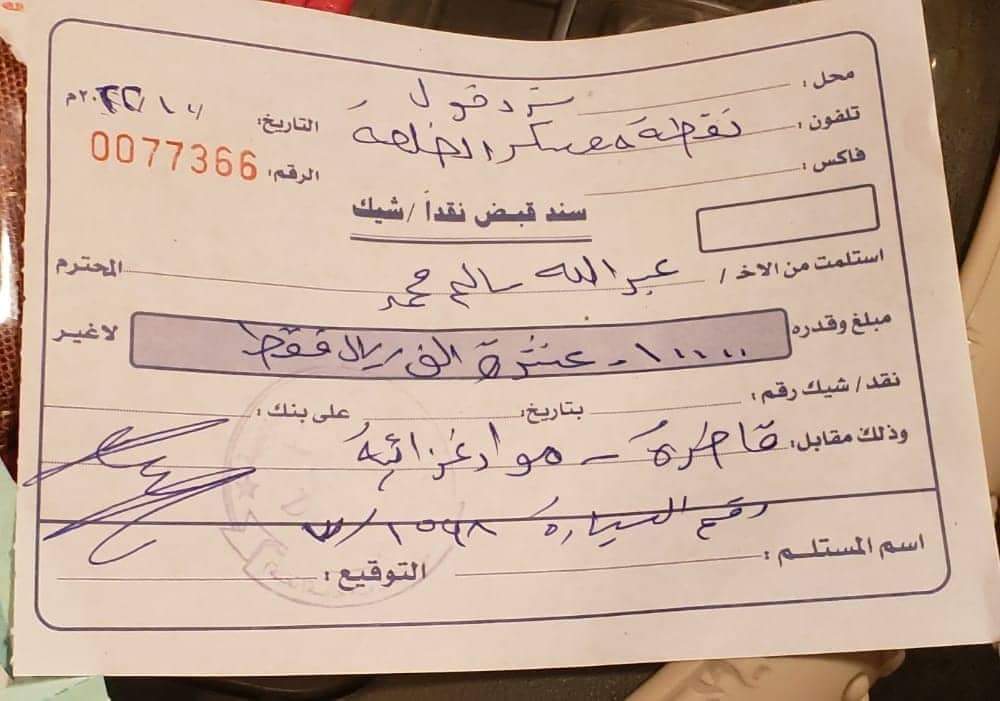 محل: سند دخول
تلفون: نقطة معسكر الضلعة
فاكس:
التاريخ: / ١٠ / ٢٠٢٢م
الرقم: 0077366
سند قبض نقداً / شيك
استلمت من الاخ / عبدالله سالم محمد المحترم
مبلغ وقدره ١٠٠٠٠ - عشرة الف ريال فقط لاغير
نقد / شيك رقم: بتاريخ: على بنك:
وذلك مقابل: قاطرة - مواد غذائية
رقم السيارة
اسم المستلم: التوقيع: